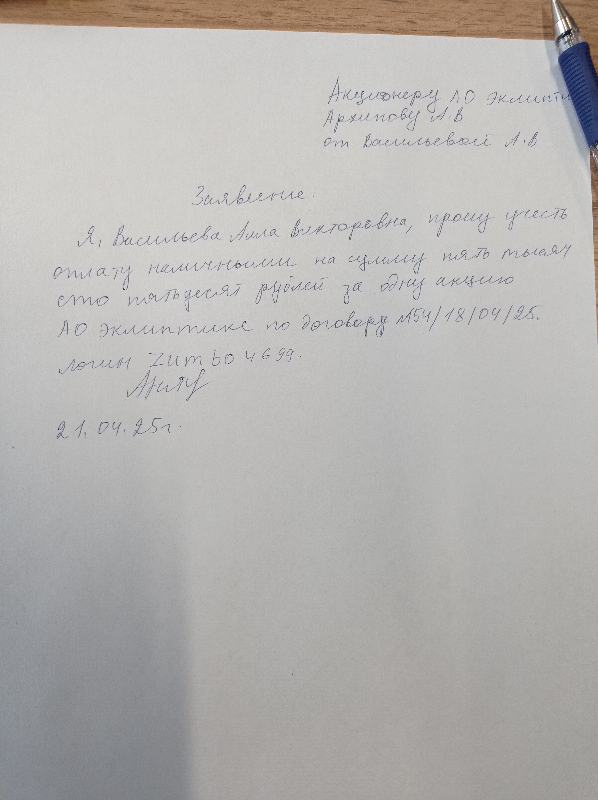 Акционеру АО Эклипти
Архипову А.В
от Васильевой А.В
Заявление.
Я, Васильева Алла Викторовна, прошу учесть
оплату наличными на сумму пять тысяч
сто пятьдесят рублей за одну акцию
АО Эклиптике по договору М54/18/04/25.
логин Zumbo4699.
21.04.25г.